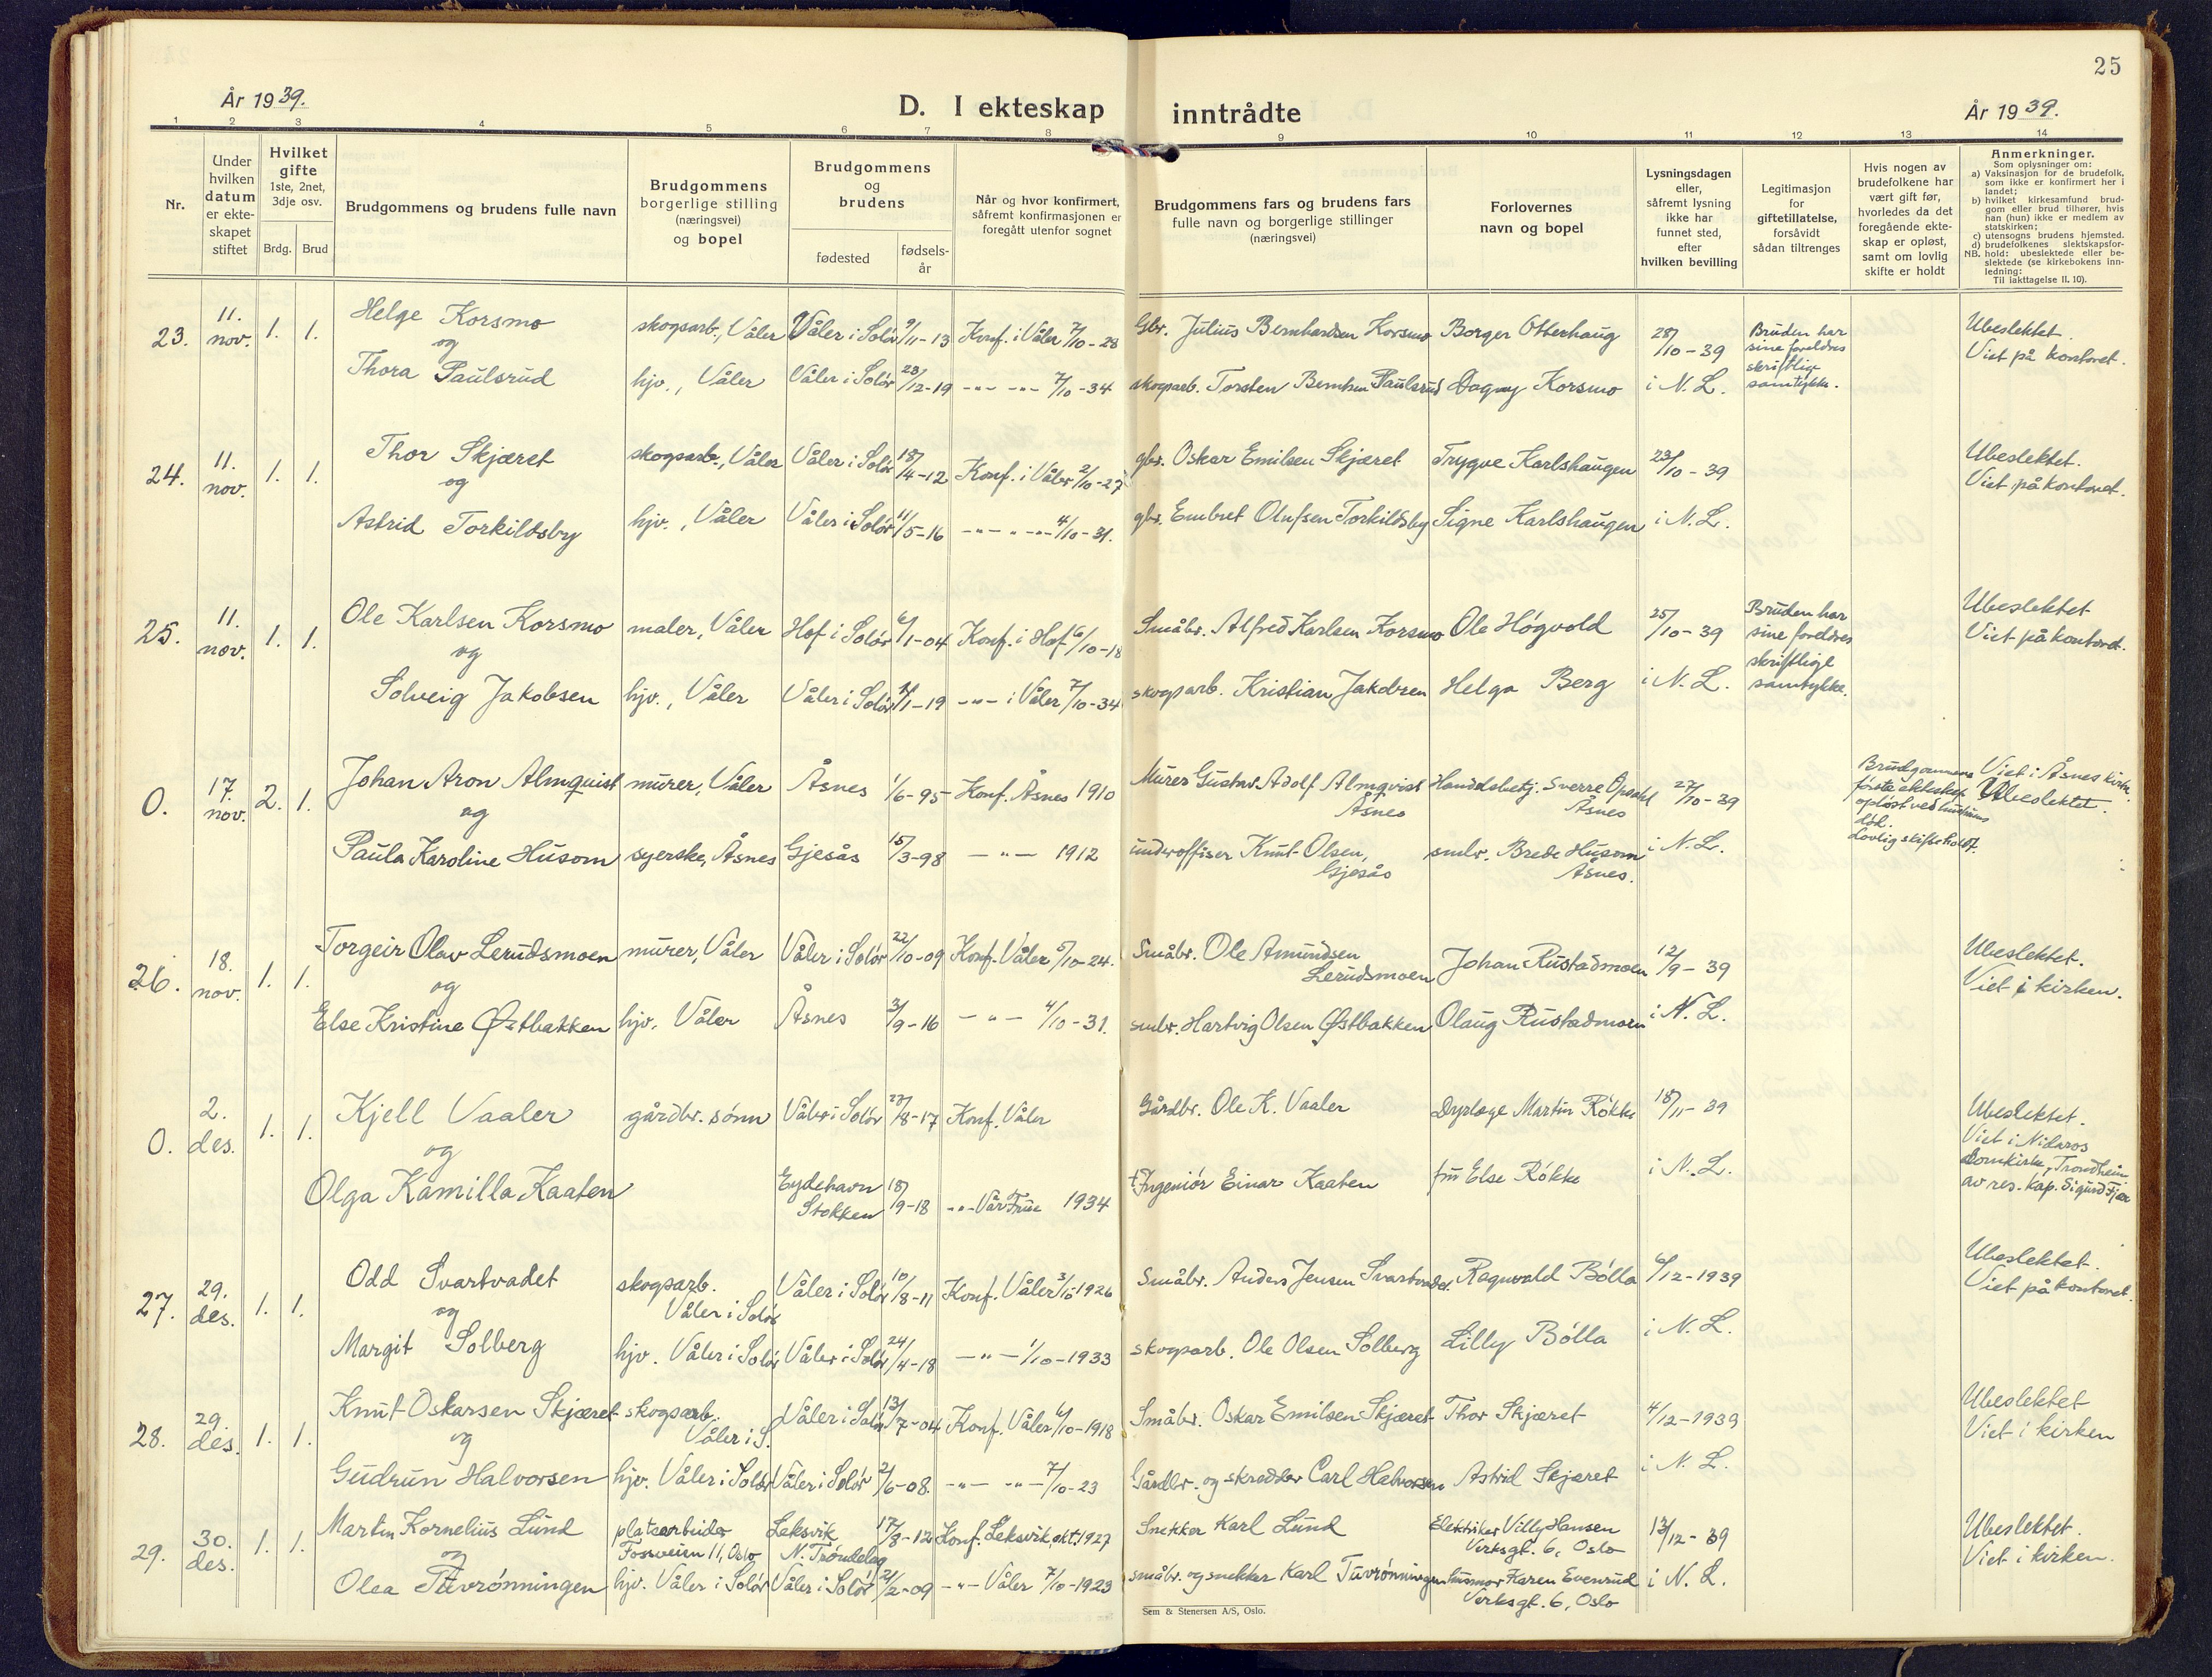 25
År 1939.
D. I ekteskap inntrådte
År 1939.
1 2 3 4 5 6 7 8 9 10 11 12 13 14
Nr.
Under hvilken datum er ekte-skapet stiftet
Hvilket gifte
1ste, 2net, 3dje osv.
Brdg. Brud
Brudgommens og brudens fulle navn
Brudgommens borgerlige stilling (næringsvei) og bopel
Brudgommens og brudens
fødested
fødsels-år
Når og hvor konfirmert, såfremt konfirmasjonen er foregått utenfor sognet
Brudgommens fars og brudens fars fulle navn og borgerlige stillinger (næringsvei)
Forlovernes navn og bopel
Lysningsdagen eller, såfremt lysning ikke har funnet sted, efter hvilken bevilling
Legitimasjon for giftetillatelse, forsåvidt sådan tiltrenges
Hvis nogen av brudefolkene har vært gift før, hvorledes da det foregående ekte-skap er opløst, samt om lovlig skifte er holdt
Anmerkninger.
Som oplysninger om:
a) Vaksinasjon for de brudefolk, som ikke er konfirmert her i landet;
b) hvilket kirkesamfund brud-gom eller brud tilhører, hvis han (hun) ikke er medlem av statskirken;
c) utensogns brudens hjemsted.
d) brudefolkenes slektskapsfor-hold: ubeslektede eller be-slektede (se kirkebokens inn-ledning:
NB. Til iakttagelse II. 10).
23. 11. nov. 1. 1. Helge Korsmo skogsarb., Våler Våler i Solør 9/11-13 Konf. i Våler 7/10-28 Gbr. Julius Bernhardsen Korsmo Borger Otterhaug 28/10-39 Bruden har sine foreldres skriftlige samtykke. Ubeslektet. Viet på kontoret.
og
Thora Paulsrud hjv., Våler Våler i Solør 23/12-19 -"- -"- 7/10-34 skogsarb. Torsten Berntsen Paulsrud Dagny Korsmo i N. L.
24. 11. nov. 1. 1. Thor Skjæret skogsarb., Våler Våler i Solør 18/4-12 Konf. i Våler 2/10-27 gbr. Oskar Emilsen Skjæret Trygve Karlshaugen 23/10-39 Ubeslektet. Viet på kontoret.
og
Astrid Torkildsby hjv., Våler Våler i Solør 11/5-16 -"- "-"- 4/10-31. gbr. Embret Olufsen Torkildsby Signe Karlshaugen i N. L.
25. 11. nov. 1. 1. Ole Karlsen Korsmo maler, Våler Hof i Solør 6/1-04 Konf. i Hof 6/10-18 Småbr. Alfred Karlsen Korsmo Ole Høgvold 25/10-39 Bruden har sine foreldres skriftlige samtykke. Ubeslektet Viet på kontoret.
og
Solveig Jakobsen hjv., Våler Våler i Solør /1-19 -"- i Våler 7/10-34 skogsarb. Kristian Jakobsen Helga Berg i N. L.
0. 17. nov. 2. 1. Johan Aron Almquist murer, Våler Åsnes 1/6-95 Konf. Åsnes 1910 Murer Gustav Adolf Almqvist Åsnes Handelsbetj. Sverre Opsahl Åsnes 27/10-39 Brudgommens første ekteskap opløst ved hustruens død. Lovlig skifte holdt. Viet i Åsnes kirke. Ubeslektet.
og
Paula Karoline Husom syerske, Åsnes Gjesås 15/3-98 -"- 1912 underoffiser Knut Olsen, Gjesås smbr. Brede Husom Åsnes. i N. L.
26. 18. nov. 1. 1. Torgeir Olav Lerudsmoen murer, Våler Våler i Solør 22/10-09 Konf. Våler 5/10-24. Småbr. Ole Amundsen Lerudsmoen Johan Rustadmoen 12/9-39 Ubeslektet. Viet i kirken.
og
Else Kristine Østbakken hjv. Våler Åsnes 3/9-16 -"- 4/10-31. smbr. Hartvig Olsen Østbakken Olaug Rustadmoen i N. L.
0. 2. des. 1. 1. Kjell Vaaler gårdbr. sønn Våler i Solør 23/8-17 Konf. Våler Gårdbr. Ole K. Vaaler Dyrlæge Martin Røkke 18/11-39 Ubeslektet. Viet i Nidaros domkirke, Trondheim av res. kap. Sigurd Fjær
og
Olga Kamilla Kaaten Eydehavn Stokken 18/9-18 -"- Vår Frue 1934 † Ingeniør Einar Kaaten fru Else Røkke i N. L.
27. 29. des. 1. 1. Odd Svartvadet skogsarb. Våler i Solør Våler i Solør 10/8-11 Konf. Våler 3/10 1926 Småbr. Anders Jensen Svartvadet. Ragnvald Bølla 6/12-1939 Ubeslektet. Viet på kontoret.
og
Margit Solberg hjv. Våler i Solør Våler i Solør 24/4-18 -"- 1/10-1933 skogsarb. Ole Olsen Solberg Lilly Bølla i N. L.
28. 29. des. 1. 1. Knut Oskarsen Skjæret skogsarb. Våler i S. Våler i Solør 13/7-04 Konf. Våler 6/10-1918 Småbr. Oskar Emilsen Skjæret Thor Skjæret 4/12-1939 Ubeslektet Viet i kirken
og
Gudrun Halvorsen hjv. Våler i Solør Våler i Solør 2/6-08. -"- -"- 7/10-23 Gårdbr. og skredder Carl Halvorsen Astrid Skjæret i N. L.
29. 30. des. 1. 1. Martin Kornelius Lund platearbeider Fossveien 11, Oslo Leksvik N. Trøndelag 17/8-12 Konf. Leksvik okt. 1927 Snekker Karl Lund Elektriker Villy Hansen Verksgt. 6, Oslo 13/12-39 Ubeslektet. Viet i kirken.
og
Olea Tuvrønningen hjv. Våler i Solør Våler i Solør 2/2-09 -"- Våler 7/10-1923 småbr. og snekker Karl Tuvrønningen husmor Karen Evenrud Verksgt. 6, Oslo i N. L.
Sem & Stenersen A/S, Oslo.